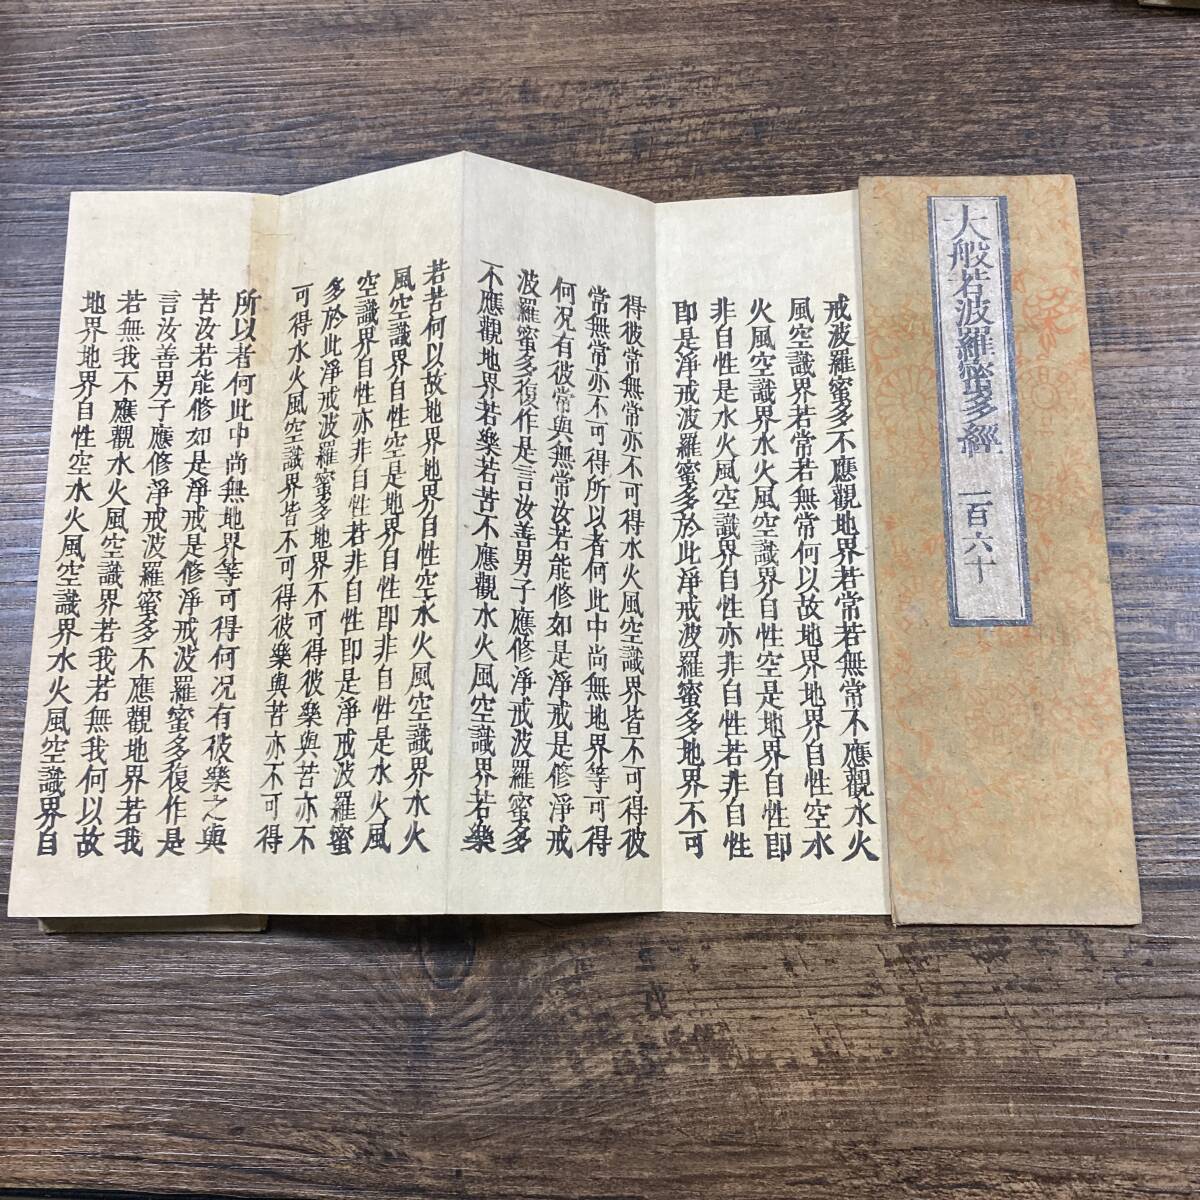 大般若波羅蜜多經 一百六十
戒波羅蜜多不應觀地界若常若無常不應觀水火
風空識界若常若無常何以故地界地界自性空水
火風空識界水火風空識界自性空是地界自性即
非自性是水火風空識界自性亦非自性若非自性
即是淨戒波羅蜜多於此淨戒波羅蜜多地界不可
得彼常無常亦不可得水火風空識界皆不可得彼
常無常亦不可得所以者何此中尚無地界等可得
何况有彼常與無常汝若能修如是淨戒是修淨戒
波羅蜜多復作是言汝善男子應修淨戒波羅蜜多
不應觀地界若樂若苦不應觀水火風空識界若樂
若苦何以故地界地界自性空水火風空識界水火
風空識界自性空是地界自性即非自性是水火風
空識界自性亦非自性若非自性即是淨戒波羅蜜
多於此淨戒波羅蜜多地界不可得彼樂與苦亦不
可得水火風空識界皆不可得彼樂與苦亦不可得
所以者何此中尚無地界等可得何况有彼樂之與
苦汝若能修如是淨戒是修淨戒波羅蜜多復作是
言汝善男子應修淨戒波羅蜜多不應觀地界若我
若無我不應觀水火風空識界若我若無我何以故
地界地界自性空水火風空識界水火風空識界自